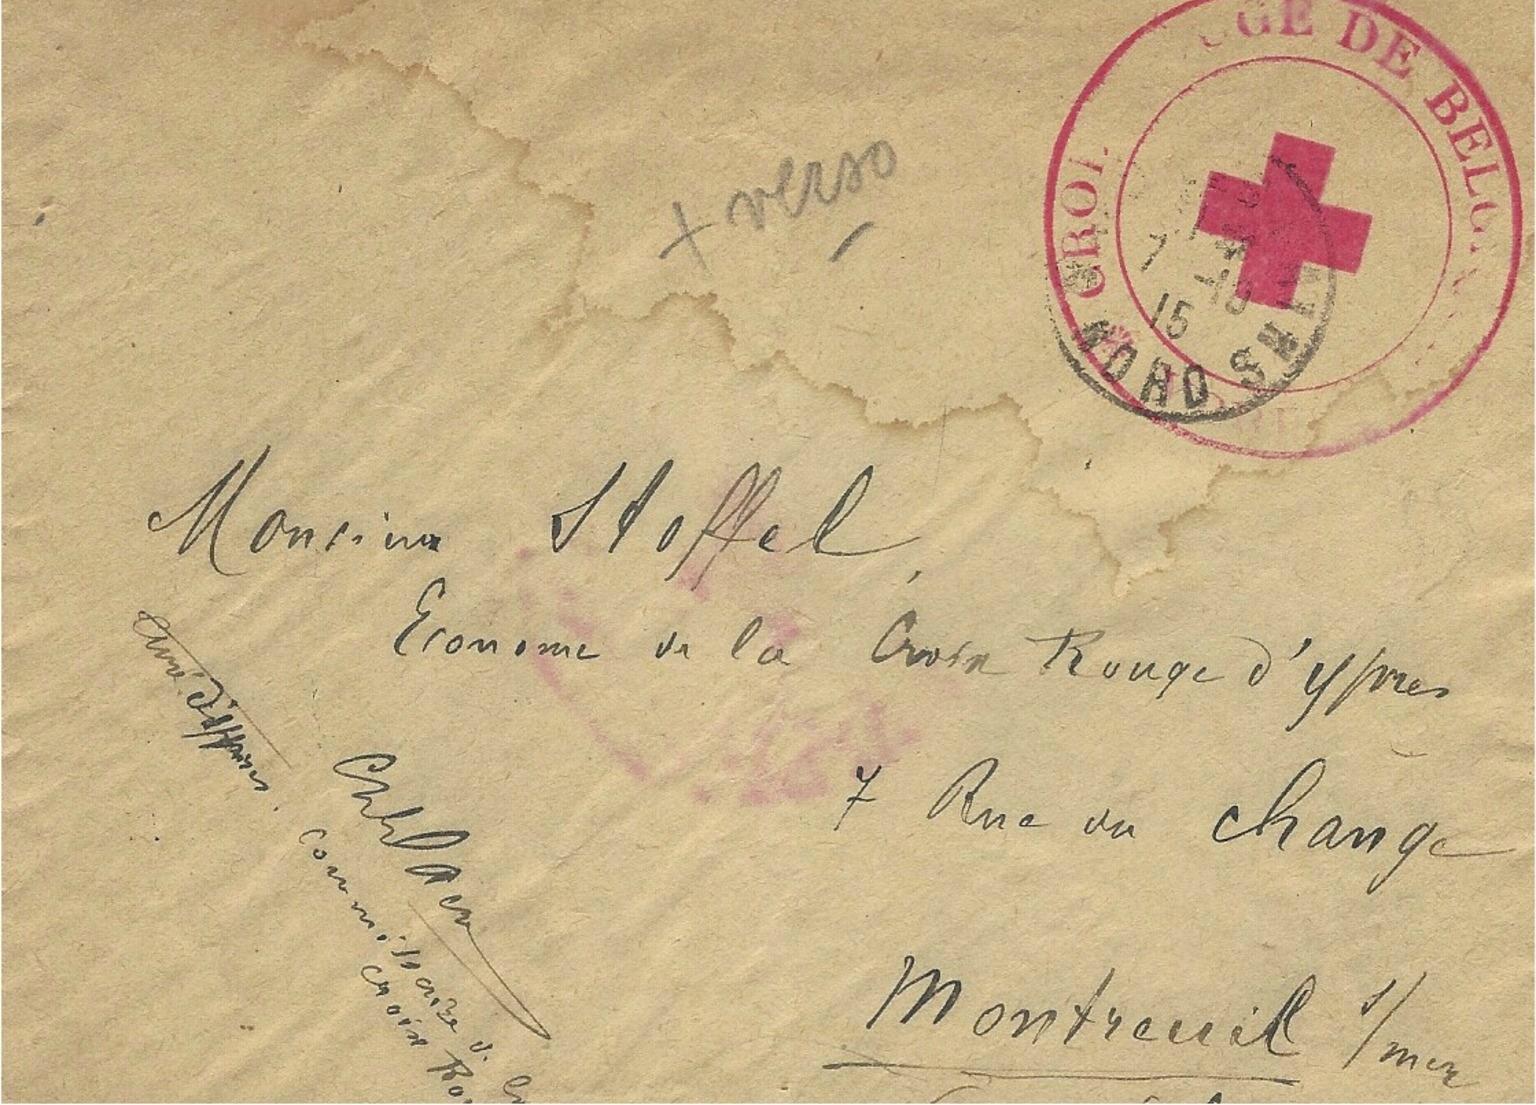 CROI UGE DE BELGI
7 -10
15
NORD SMIT
+ verso
Monsieur Stoffel,
Econome de la Croix Rouge d'Ypres
7 Rue du Change
Montreuil s/mer
d'Ypres.
Commissaire d. la
Croix Rou